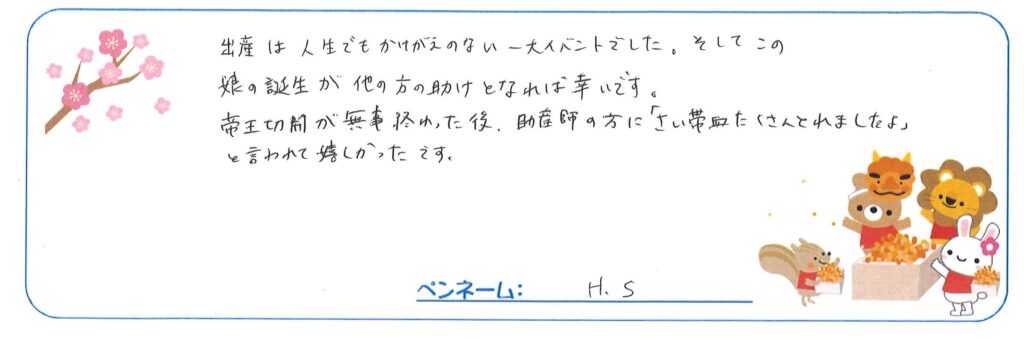 出産は人生でもかけがえのない一大イベントでした。そしてこの
娘の誕生が他の方の助けとなれば幸いです。
帝王切開が無事終わった後、助産師の方に「さい帯血たくさんとれましたよ」
と言われて嬉しかったです。
ペンネーム: H. S